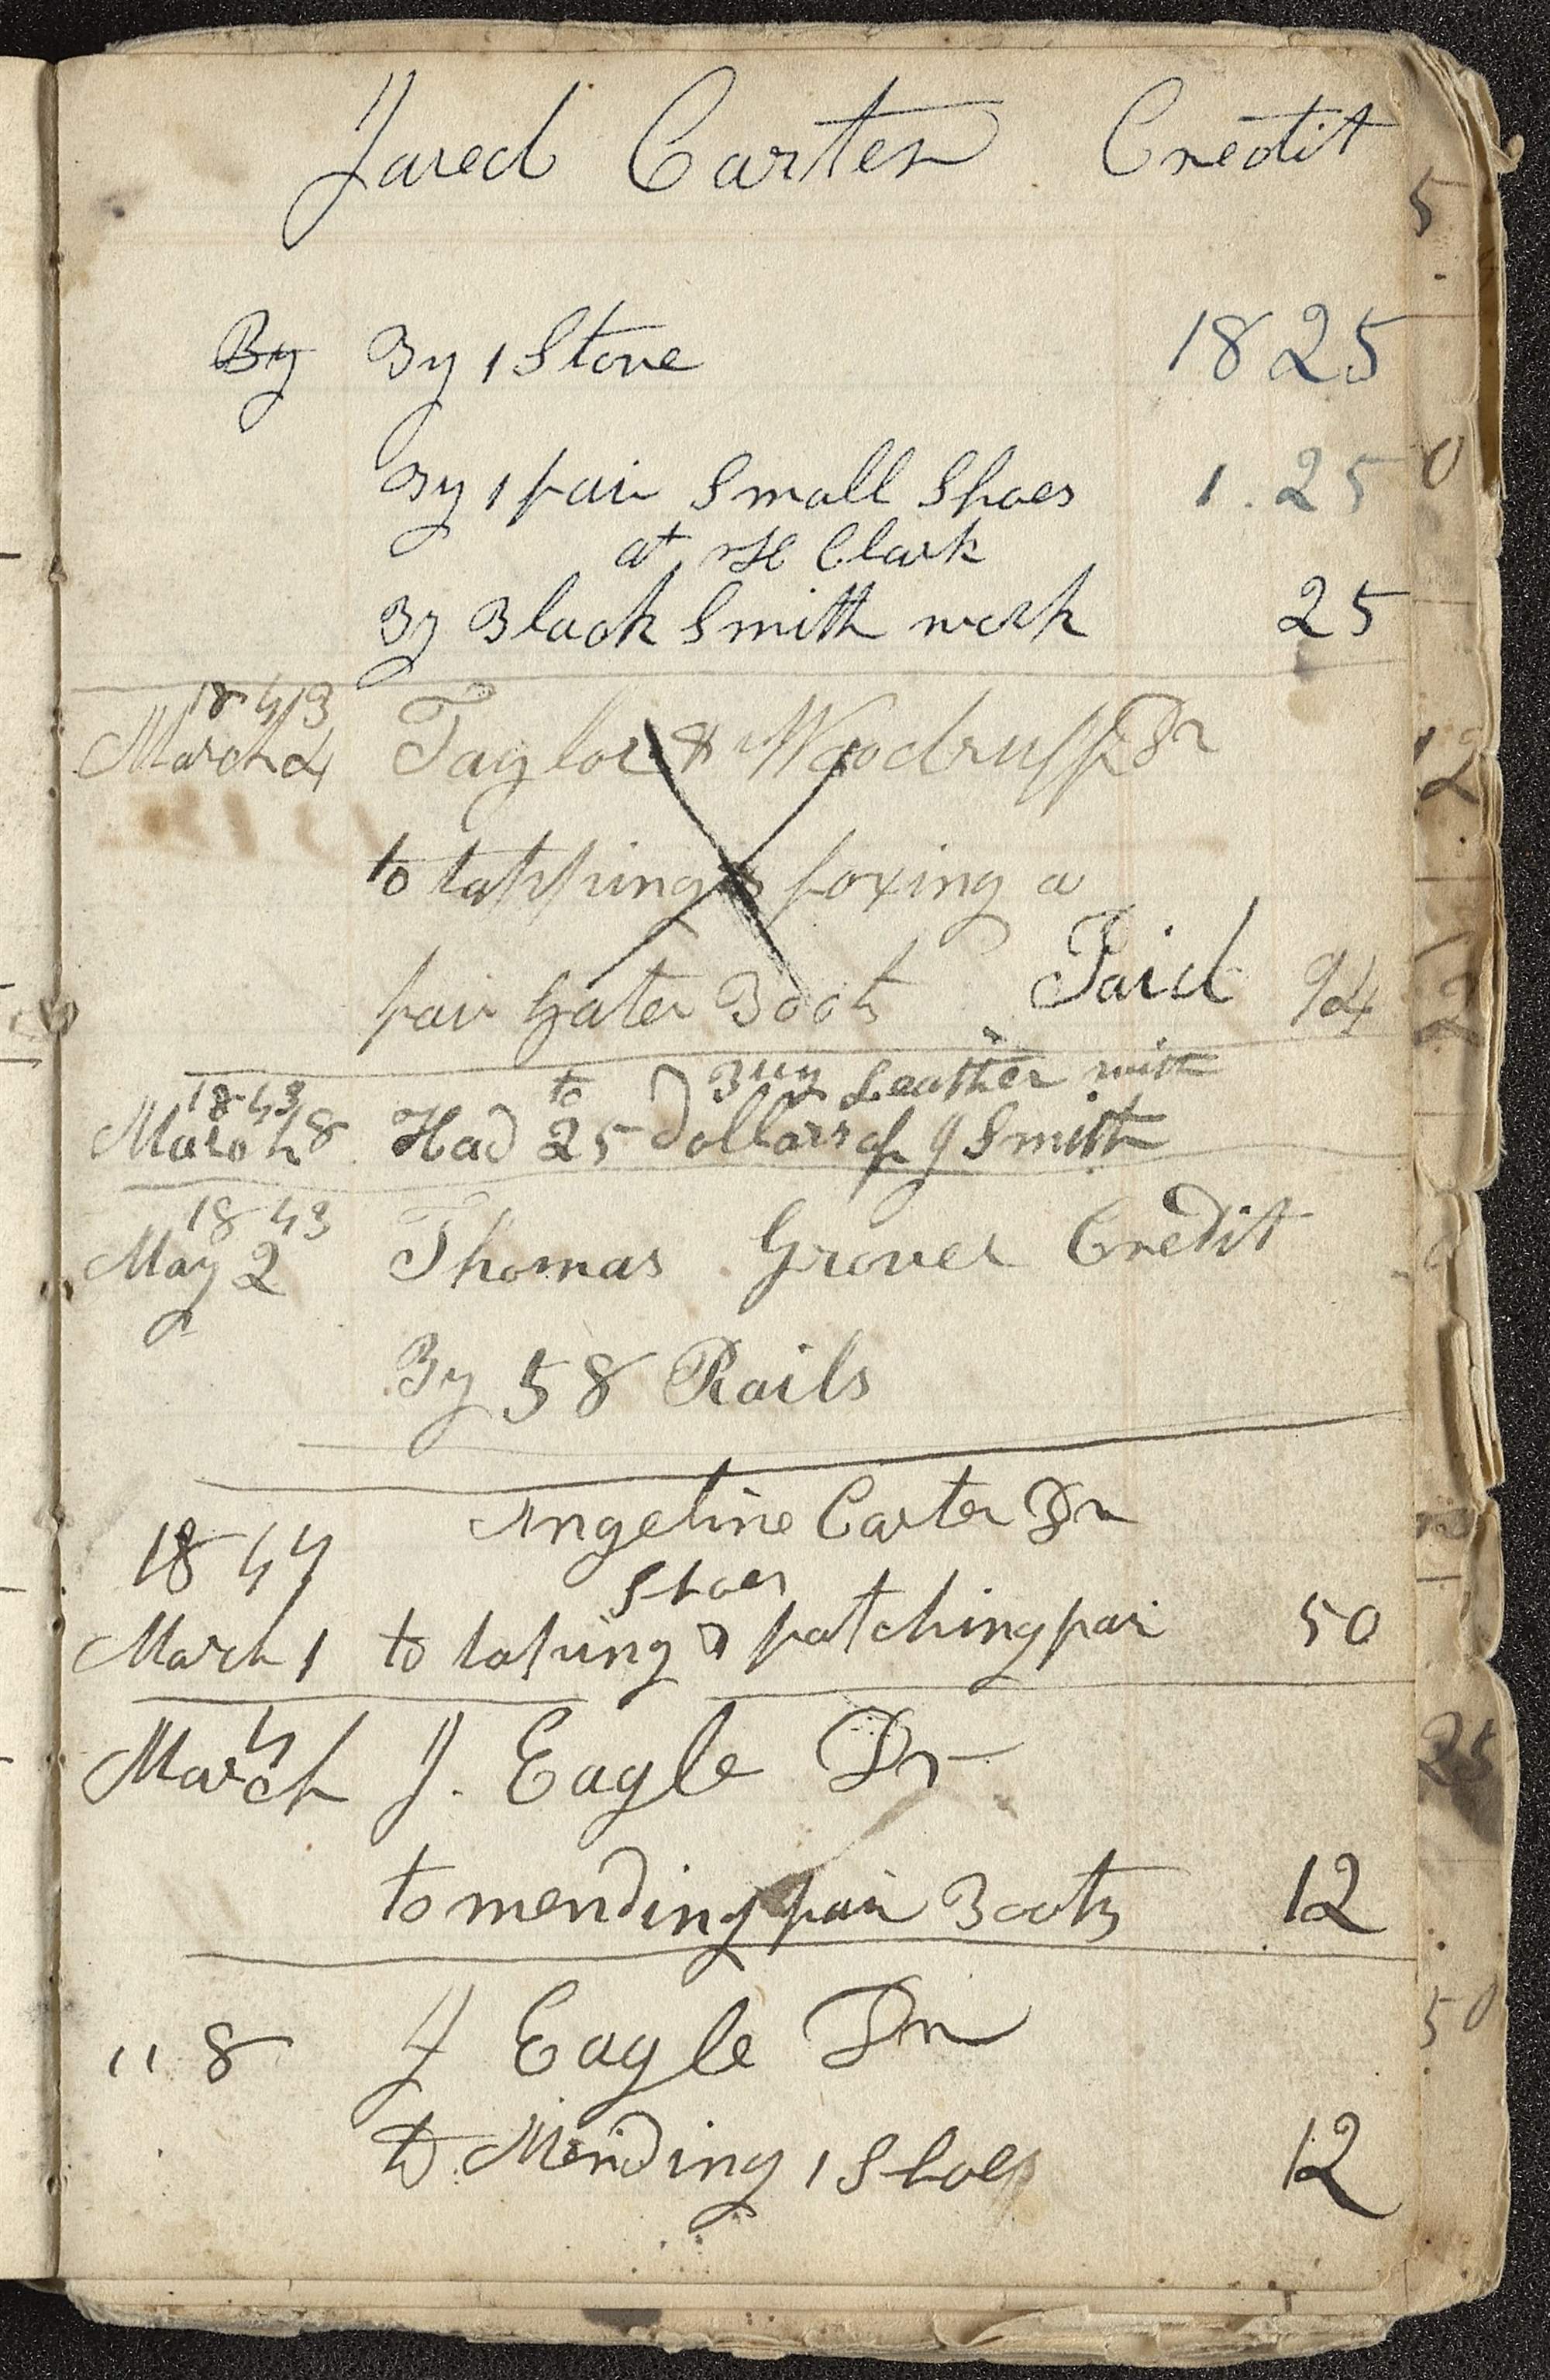 Jared Carter Credit
By By 1 Stove 18 25
By 1 pair Small Shoes 1.25
at H Clark
By Black Smith work 25
1843
March 4 Taylor & Woodruff Dr
to tapping & foxing a
pair Gater Boots Paid 94
to Buy Leather with
1843
March 8 Had 25 Dollars of J Smith
1843
May 2 Thomas Grover Credit
By 58 Rails
Angeline Carter Dr
1844
Shoes
March 1 to taping & patching pair 50
March 4 J. Eagle Dr
to mending pair Boots 12
" 8 J Eagle Dr
to Mending 1 Shoe 12
5
0
12
25
50